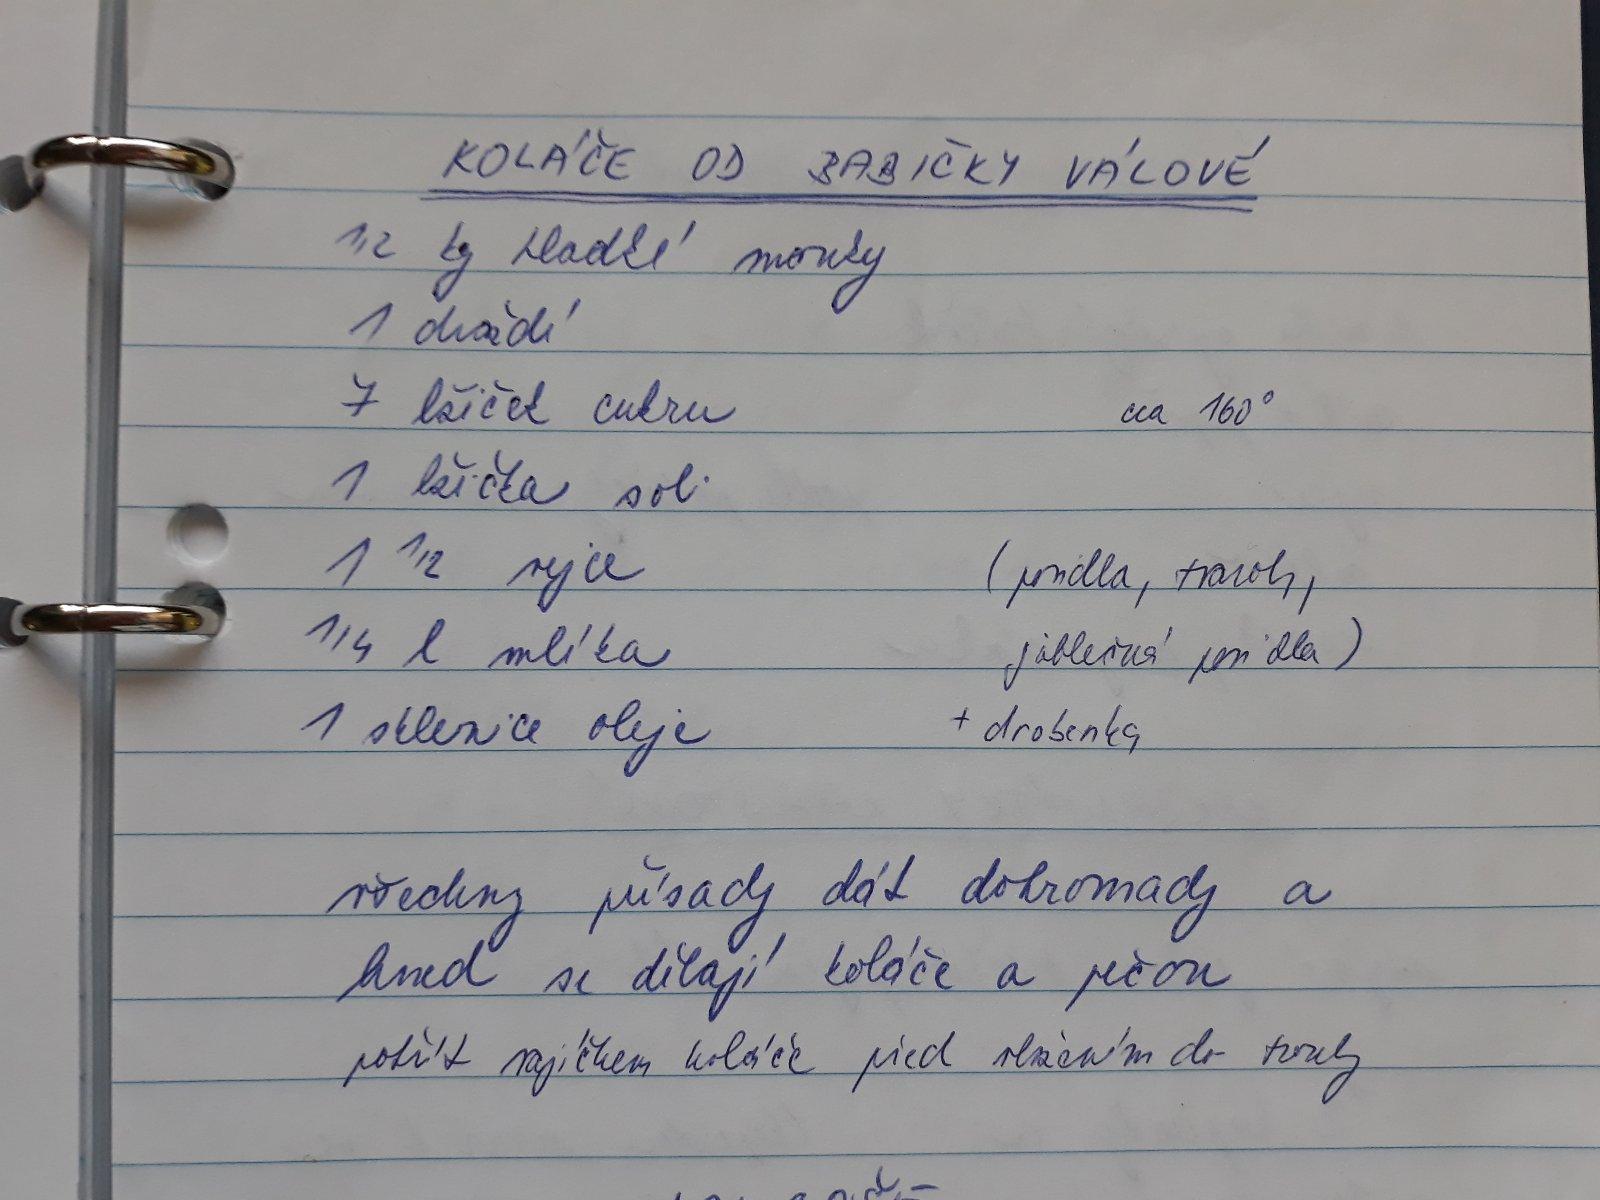 KOLÁČE OD BABIČKY VÁLOVÉ
1/2 kg hladké mouky
1 droždí
7 lžiček cukru
cca 160°
1 lžička soli
1 1/2 vejce
(povidla, tvaroh,
1/4 l mlíka
jablečná povidla)
1 sklenice oleje
+ drobenka
všechny přísady dát dohromady a
hned se dělají koláče a pečou
potřít vajíčkem koláče před vložením do trouby